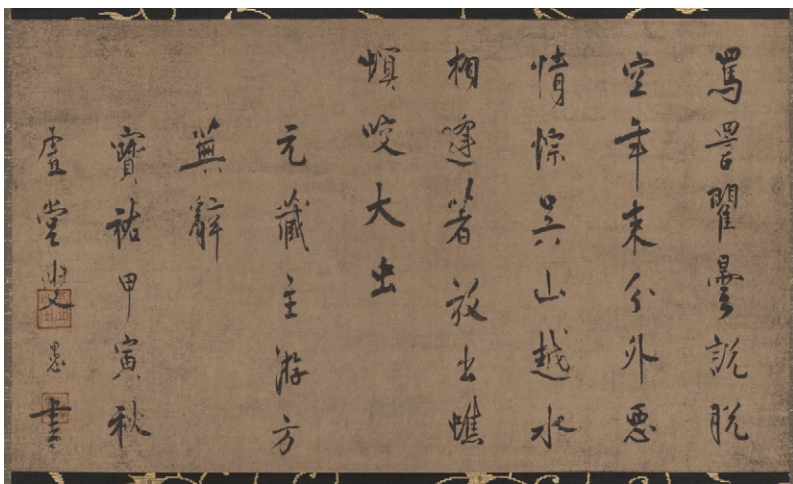 罵詈瞿曇説脱
空年来分外悪
情悰呉山越水
相逢著放出蟭
螟咬大虫
元藏主游方
辭
寶祐甲寅秋
虗堂叟愚書